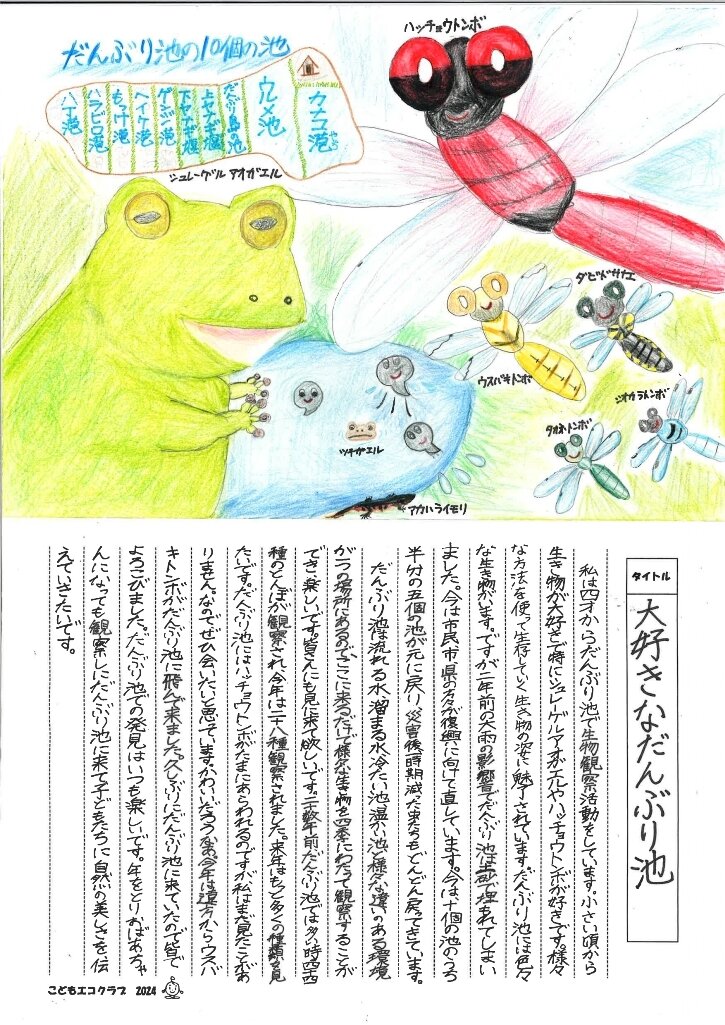 だんぶり池の10個の池
カナコ沼
ウルメ池
だんぶり島の池
上ヤナギ堰
下ヤナギ堰
ゲンジ沼
ヘイケ沼
もっけ沼
ハラビロ沼
ハナ沼
ハッチョウトンボ
シュレーゲルアオガエル
ウスバキトンボ
ダビドサナエ
シオカラトンボ
タオネトンボ
ツチガエル
アカハライモリ
タイトル
大好きなだんぶり池
私は四才からだんぶり池で生物観察活動をしています。小さい頃から
生き物が大好きで特にシュレーゲルアオガエルやハッチョウトンボが好きです。様々
な方法を使って生存していく生き物の姿に魅了されています。だんぶり池には色々
な生き物がいます。ですが二年前の大雨の影響でだんぶり池は土砂で埋まれてしまい
ました。今は市民、市、県の方々が復興に向けて直しています。今は十個の池のうち
半分の五個の池が元に戻り災害後一時期減った虫たちもどんどん戻ってきています。
だんぶり池は流れる水溜まる水冷たい池温かい池と様々な違いのある環境
が一つの場所にあるのでここに来るだけで様々な生き物を四季にわたって観察することが
でき楽しいです。皆さんにも見に来て欲しいです。二十数年前だんぶり池では多い時四十四
種のとんぼが観察され、今年は二十八種観察されました。来年はもっと多くの種類を見
たいです。だんぶり池にはハッチョウトンボがたまにあらわれるのですが私はまだ見たことがあ
りません。なのでぜひ会いたいと思っています。かわいいだろうなあ。今年は遠方からウスバ
キトンボがだんぶり池に飛んで来ました。久しぶりにだんぶり池に来ていたので皆で
よろこびました。だんぶり池での発見はいつも楽しいです。年をとりおばあちゃ
んになっても観察しにだんぶり池に来て子どもたちに自然の美しさを伝
えていきたいです。
こどもエコクラブ 2024